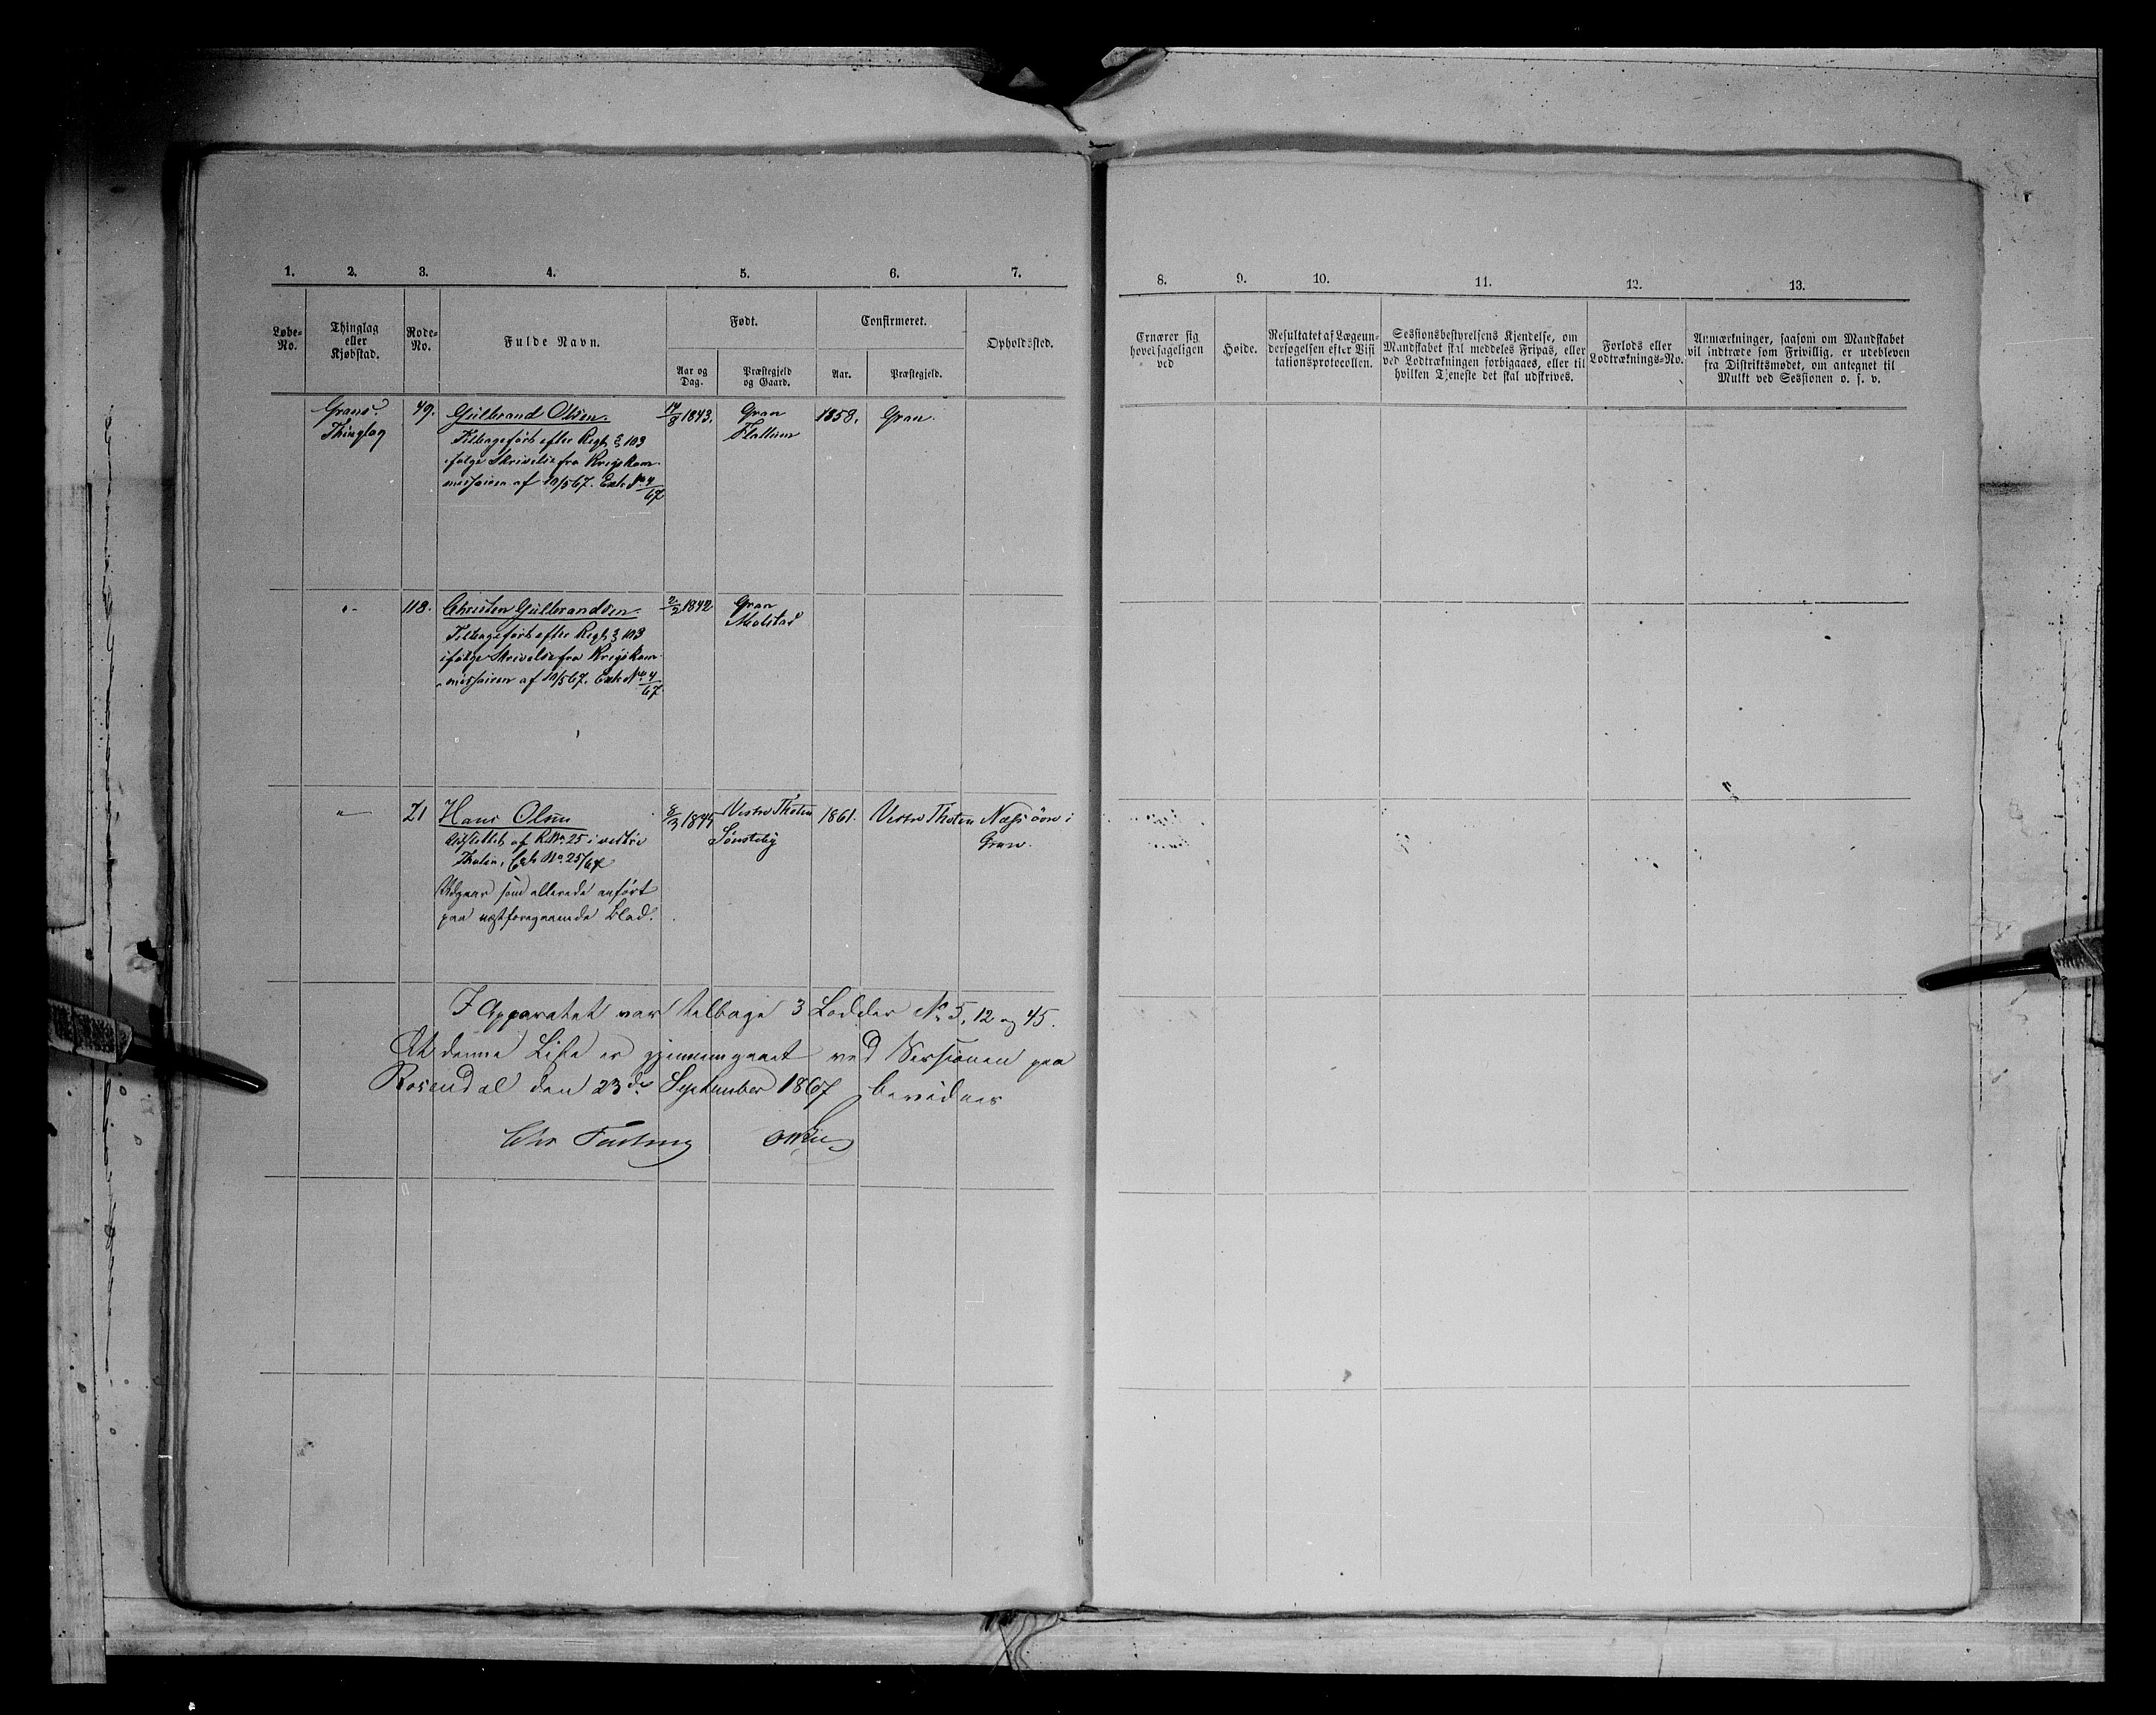 1. 2. 3. 4. 5. 6. 7.
Løbe-
No.
Thinglag
eller
Kjøbstad.
Rode-
No.
Fulde Navn.
Født.
Aar og
Dag.
Præstegjeld
og Gaard.
Confirmeret.
Aar.
Præstegjeld.
Opholdssted.
Grans
Thinglag
49.
Gulbrand Olsen.
Tilbageført efter Regl. § 103
ifølge Skrivelse fra Krigskom-
missairen af 10/5 67. Exh. No. 4/67
14/8 1843.
Gran
Flatlum
1858.
Gran.
"-
118.
Christen Gulbrandsen.
Tilbageført efter Regl. § 103
ifølge Skrivelse fra Krigskom-
missairen af 10/5 67. Exh. No. 4/67
2/2 1842
Gran
Molstad
"-
71
Hans Olsen
af R.No. 25 i vestre
Thoten, Exh. No. 25/67
Udgaar som allerede anført
paa næstforegaaende Blad.
8/3 1845
Vestre Thoten
Sønsteby
1861.
Vestre Thoten
Næss øvre i
Gran.
I Apparatet var tilbage 3 Lodder No 5, 12 og 45.
At denne Liste er gjennemgaaet ved Sessionen paa
Rosendal den 23de September 1867 bevidnes
8. 9. 10. 11. 12. 13.
Ernærer sig
hovedsageligen
ved
Høide.
Resultatet af Lægeun-
dersøgelsen efter Visi
tationsprotocollen.
Sessionsbestyrelsens Kjendelse, om
Mandskabet skal meddeles Fripas, eller
ved Lodtrækningen forbigaaes, eller til
hvilken Tjeneste det skal udskrives.
Forlods eller
Lodtræknings-No.
Anmærkninger, saasom om Mandskabet
vil indtræde som Frivillig, er udebleven
fra Distriktsmødet, om antegnet til
Mulkt ved Sessionen o. s. v.